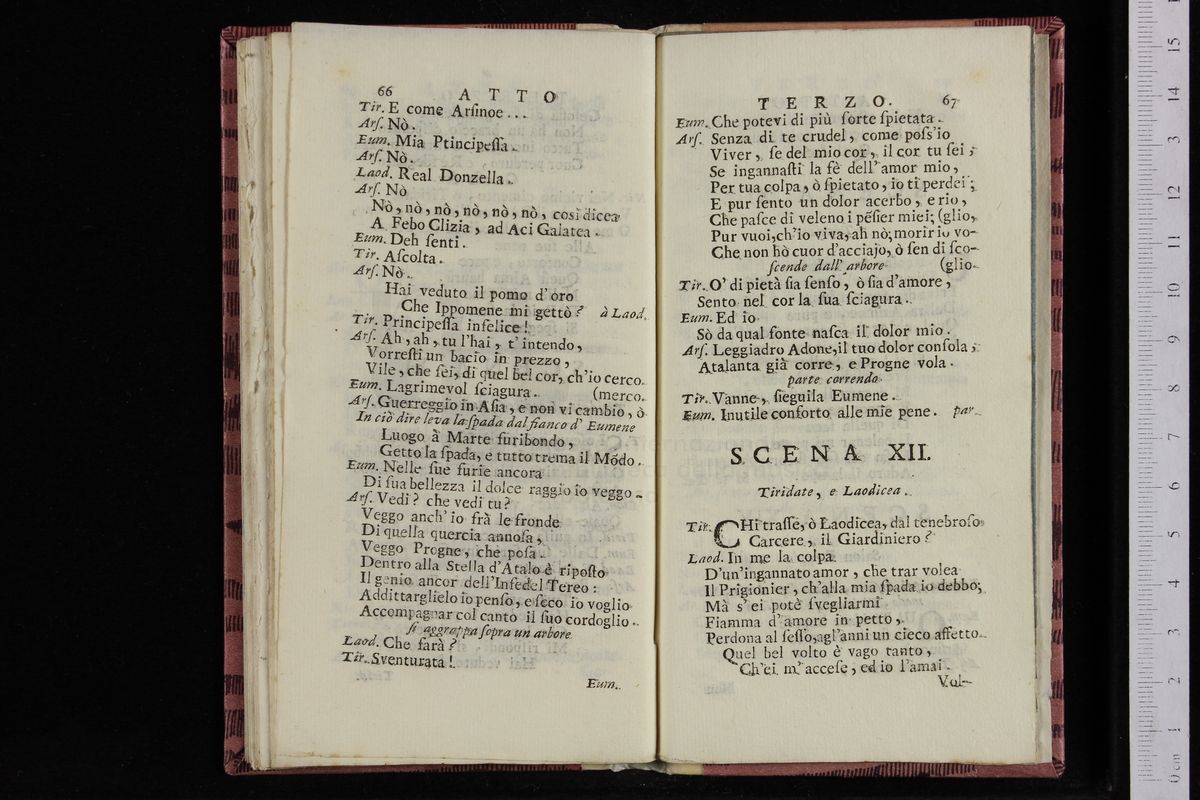 66 ATTO
Tir. E come Arſinoe...
Arſ. Nò.
Eum. Mia Ptincipeſſa.
Arſ. Nò.
Laod. Real Donzella.
Arſ. Nò
Nò, nò, nò, nò, nò, nò, così dicea
A Febo Clizia, ad Aci Galatea.
Eum. Deh ſenti.
Tir. Aſcolta.
Arſ. Nò.
Hai veduto il pomo d'oro
Che Ippomene mi gettò? à Laod.
Tir. Principeſſa infelice!
Arſ. Ah, ah, tu l'hai, t'intendo,
Vorreſti un bacio in prezzo,
Vile, che ſei, di quel bel cor, ch'io cerco.
Eum. Lagrimevol ſciagura. (merco.
Arſ. Guerreggio in Aſia, e non vi cambio, ò
In ciò dire leva la ſpada dal fianco d' Eumene
Luogo à Marte furibondo,
Getto la ſpada, e tutto trema il Mõdo.
Eum. Nelle ſue furie ancora
Di ſua bellezza il dolce raggio io veggo.
Arſ. Vedi? che vedi tu?
Veggo anch'io frà le fronde
Di quella quercia annoſa,
Veggo Progne, che poſa.
Dentro alla Stella d'Atalo è ripoſto
Il genio ancor dell'Infedel Tereo:
Addittarglielo io penſo, e ſeco io voglio
Accompagnar col canto il ſuo cordoglio.
ſi aggrappa ſopra un arbore
Laod. Che farà?
Tir. Sventurata!
Eum.
TERZO. 67
Eum. Che potevi di più ſorte ſpietata.
Arſ. Senza di te crudel, come poſs'io
Viver, ſe del mio cor, il cor tu ſei;
Se ingannaſti la fè dell'amor mio,
Per tua colpa, ò ſpietato, io ti perdei;
E pur ſento un dolor acerbo, e rio,
Che paſce di veleno i pẽſier miei; (glio,
Pur vuoi, ch'io viva, ah nò; morir io vo-
Che non hò cuor d'acciajo, ò ſen di ſco-
ſcende dall' arbore (glio.
Tir. O' di pietà ſia ſenſo, ò ſia d'amore,
Sento nel cor la ſua ſciagura.
Eum. Ed io
Sò da qual fonte naſca il dolor mio.
Arſ. Leggiadro Adone, il tuo dolor conſola;
Atalanta già corre, e Progne vola.
parte correndo
Tir. Vanne, ſieguila Eumene.
Eum. Inutile conforto alle mie pene. par.
SCENA XII.
Tiridate, e Laodicea.
Tir. CHi traſſe, ò Laodicea, dal tenebroſo
Carcere, il Giardiniero?
Laod. In me la colpa
D'un'ingannato amor, che trar volea
Il Prigionier, ch'alla mia ſpada io debbo;
Mà s'ei potè ſvegliarmi
Fiamma d'amore in petto,
Perdona al ſeſſo, agl'anni un cieco affetto.
Quel bel volto è vago tanto,
Ch'ei m'acceſe, ed io l'amai.
Vol-
15
14
13
12
11
10
9
8
7
6
5
4
3
2
1
0 cm